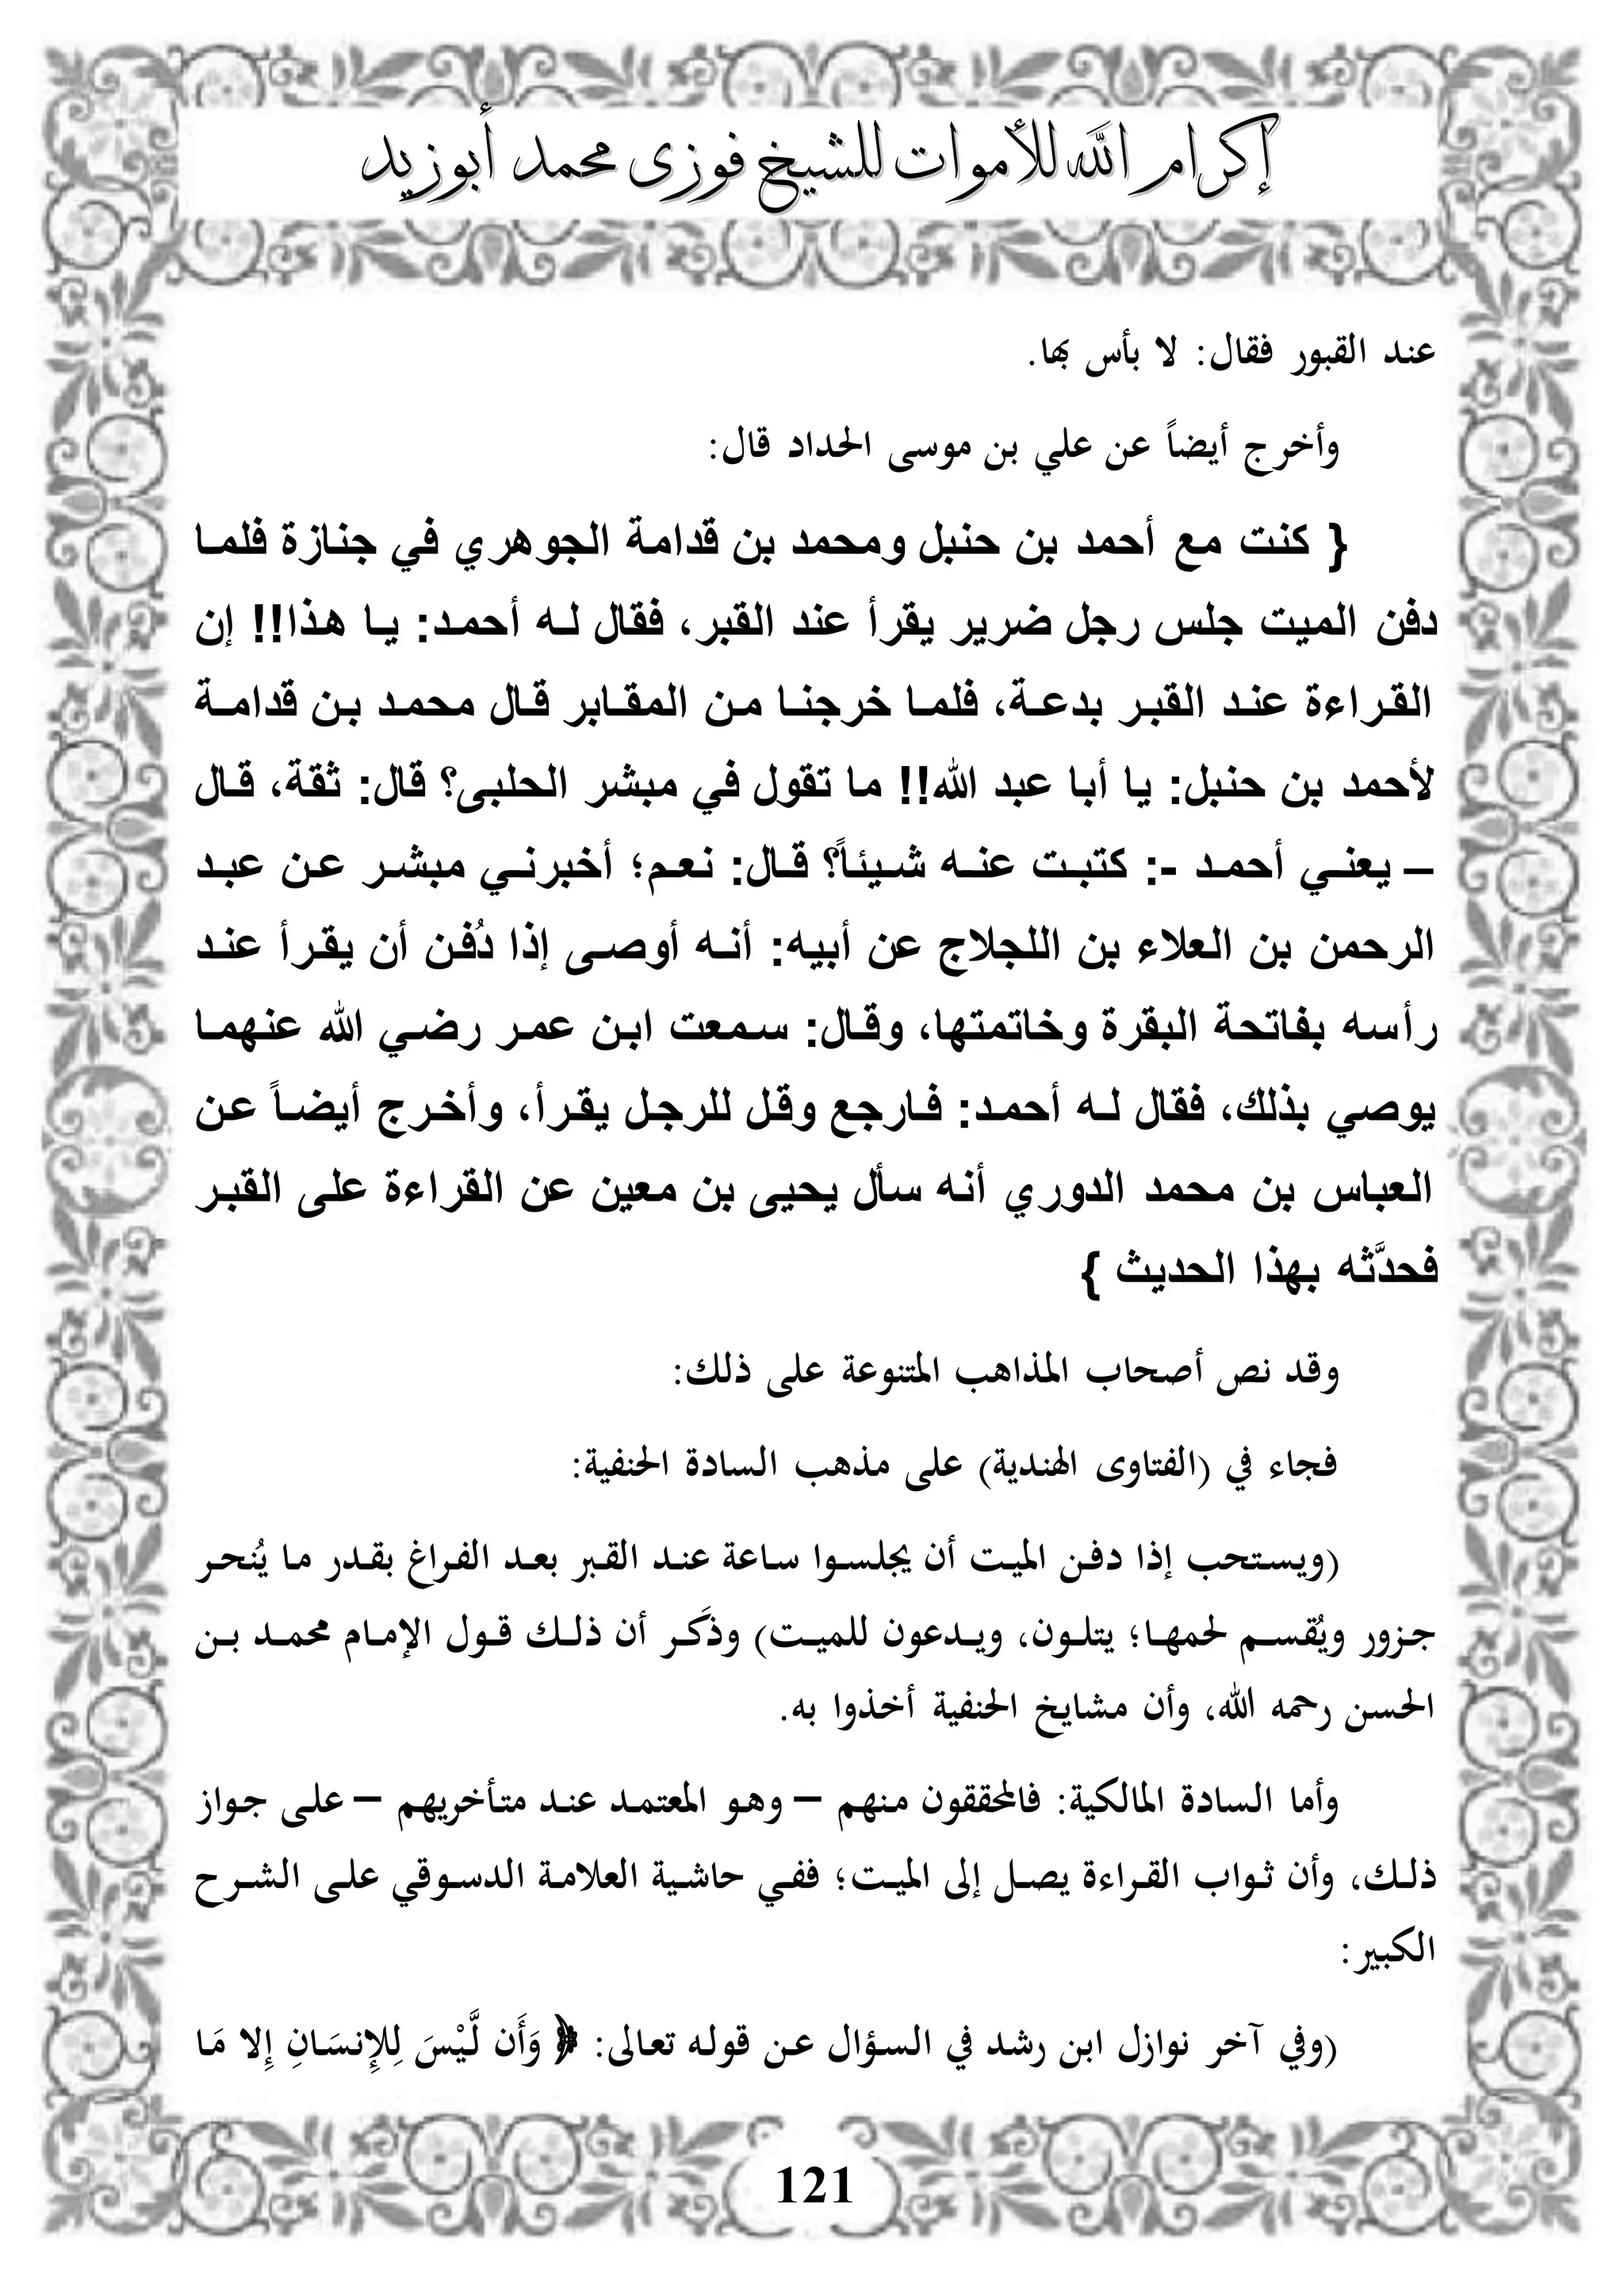 إكرام الله للأموات للشيخ فوزى محمد أبوزيد
عند القبور فقال: لا بأس بها.
وأخرج أيضاً عن علي بن موسى الحداد قال:
{ كنت مع أحمد بن حنبل ومحمد بن قدامة الجوهري في جنازة فلما
دفن الميت جلس رجل ضرير يقرأ عند القبر، فقال له أحمد: يا هذا!! إن
القراءة عند القبر بدعة، فلما خرجنا من المقابر قال محمد بن قدامة
لأحمد بن حنبل: يا أبا عبد الله!! ما تقول في مبشر الحلبى؟ قال: ثقة، قال
– يعني أحمد -: كتبت عنه شيئاً؟ قال: نعم؛ أخبرني مبشر عن عبد
الرحمن بن العلاء بن اللجلاج عن أبيه: أنه أوصى إذا دُفن أن يقرأ عند
رأسه بفاتحة البقرة وخاتمتها، وقال: سمعت ابن عمر رضي الله عنهما
يوصي بذلك، فقال له أحمد: فارجع وقل للرجل يقرأ، وأخرج أيضاً عن
العباس بن محمد الدوري أنه سأل يحيى بن معين عن القراءة على القبر
فحدَّثه بهذا الحديث }
وقد نص أصحاب المذاهب المتنوعة على ذلك:
فجاء في (الفتاوى الهندية) على مذهب السادة الحنفية:
(ويستحب إذا دفن الميت أن يجلسوا ساعة عند القبر بعد الفراغ بقدر ما يُنحر
جزور ويُقسم لحمها؛ يتلون، ويدعون للميت) وذَكر أن ذلك قول الإمام محمد بن
الحسن رحمه الله، وأن مشايخ الحنفية أخذوا به.
وأما السادة المالكية: فالمحققون منهم – وهو المعتمد عند متأخريهم – على جواز
ذلك، وأن ثواب القراءة يصل إلى الميت؛ ففي حاشية العلامة الدسوقي على الشرح
الكبير:
(وفي آخر نوازل ابن رشد في السؤال عن قوله تعالى: ﴿ وَأَن لَّيْسَ لِلإِنسَانِ إِلا مَا
121